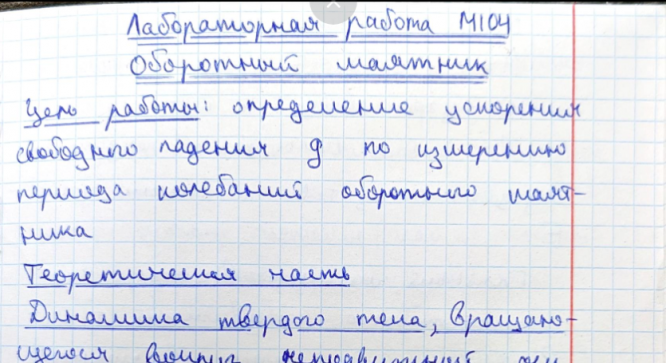 Лабораторная работа М104
Оборотный маятник
Цель работы: определение ускорения
свободного падения g по измерению
периода колебаний оборотного маят-
ника
Теоретическая часть
Динамика твердого тела, вращаю-
щегося вокруг неподвижной оси